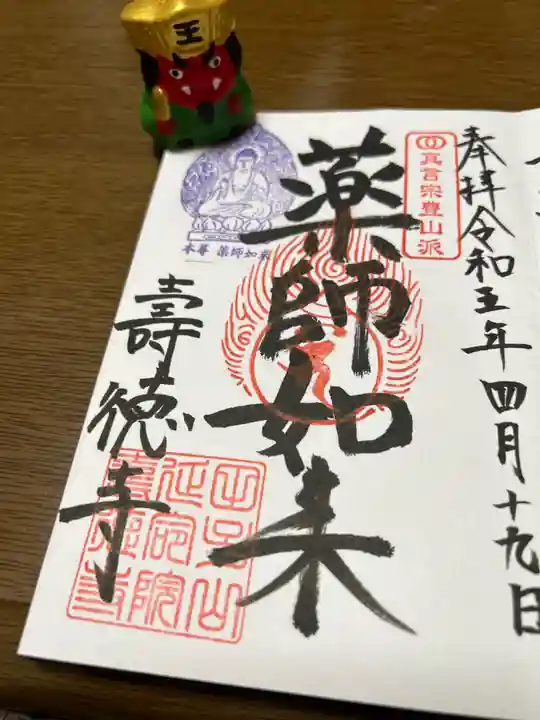 奉拝令和五年四月十九日
真言宗豊山派
薬師如来
本尊 薬師如来
壽徳寺
王